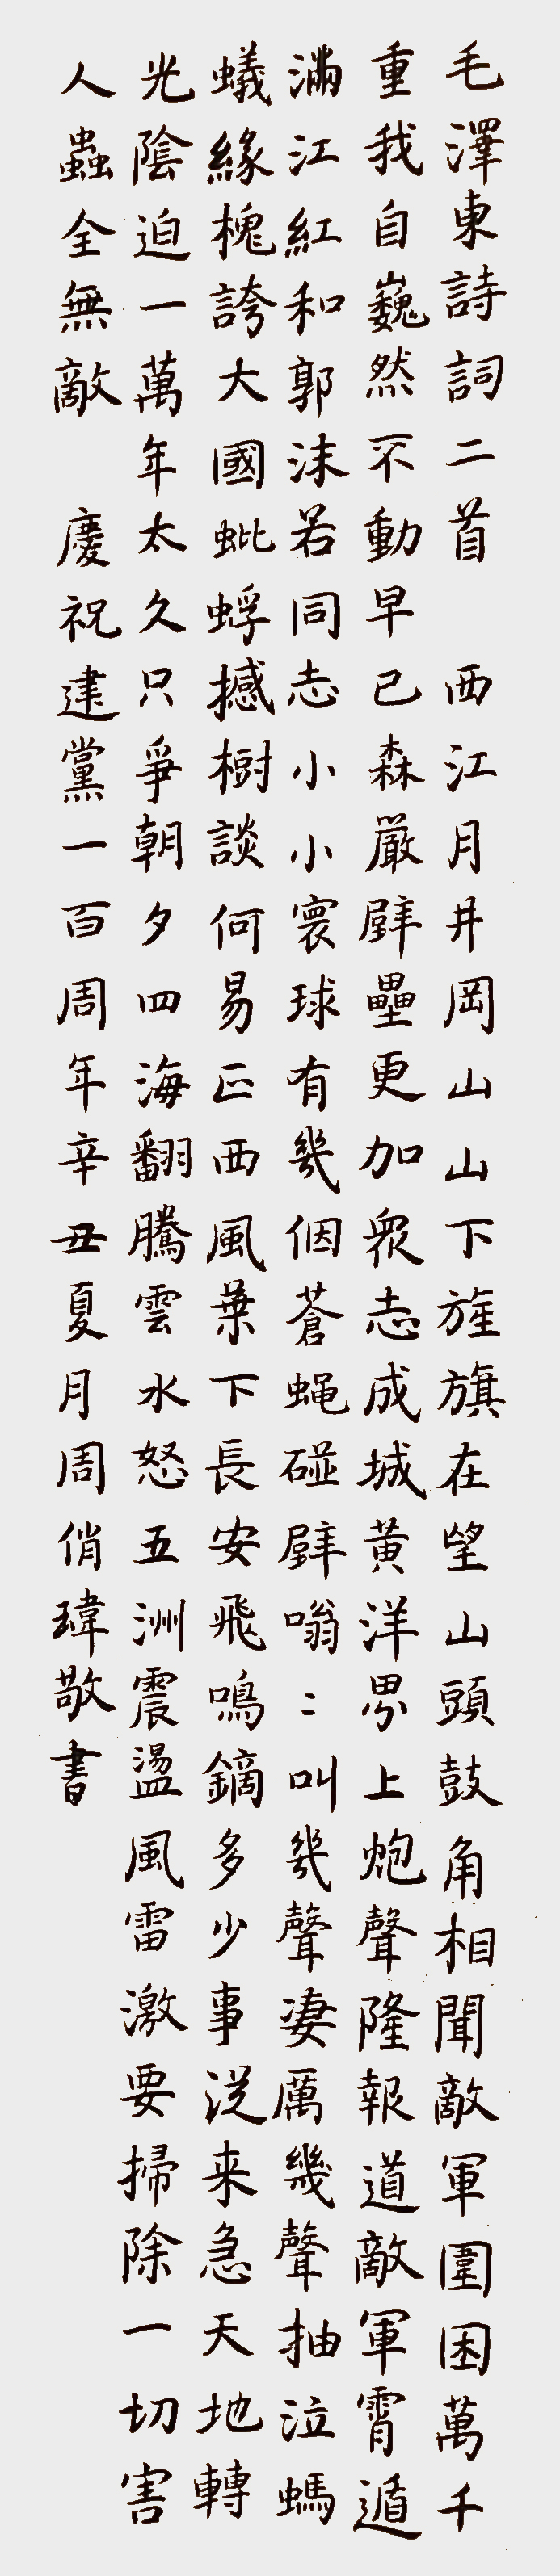 毛澤東詩詞二首 西江月井岡山山下旌旗在望山頭鼓角相聞敵軍圍困萬千
重我自巍然不動早已森嚴壁壘更加衆志成城黃洋界上炮聲隆報道敵軍霄遁
滿江紅和郭沫若同志小小寰球有幾個蒼蝇碰壁嗡〻叫幾聲凄厲幾聲抽泣螞
蟻緣槐誇大國蚍蜉撼樹談何易正西風葉下長安飛鳴鏑多少事従来急天地轉
光陰迫一萬年太久只爭朝夕四海翻騰雲水怒五洲震盪風雷激要掃除一切害
人蟲全無敵 慶祝建黨一百周年辛丑夏月周俏瑋敬書